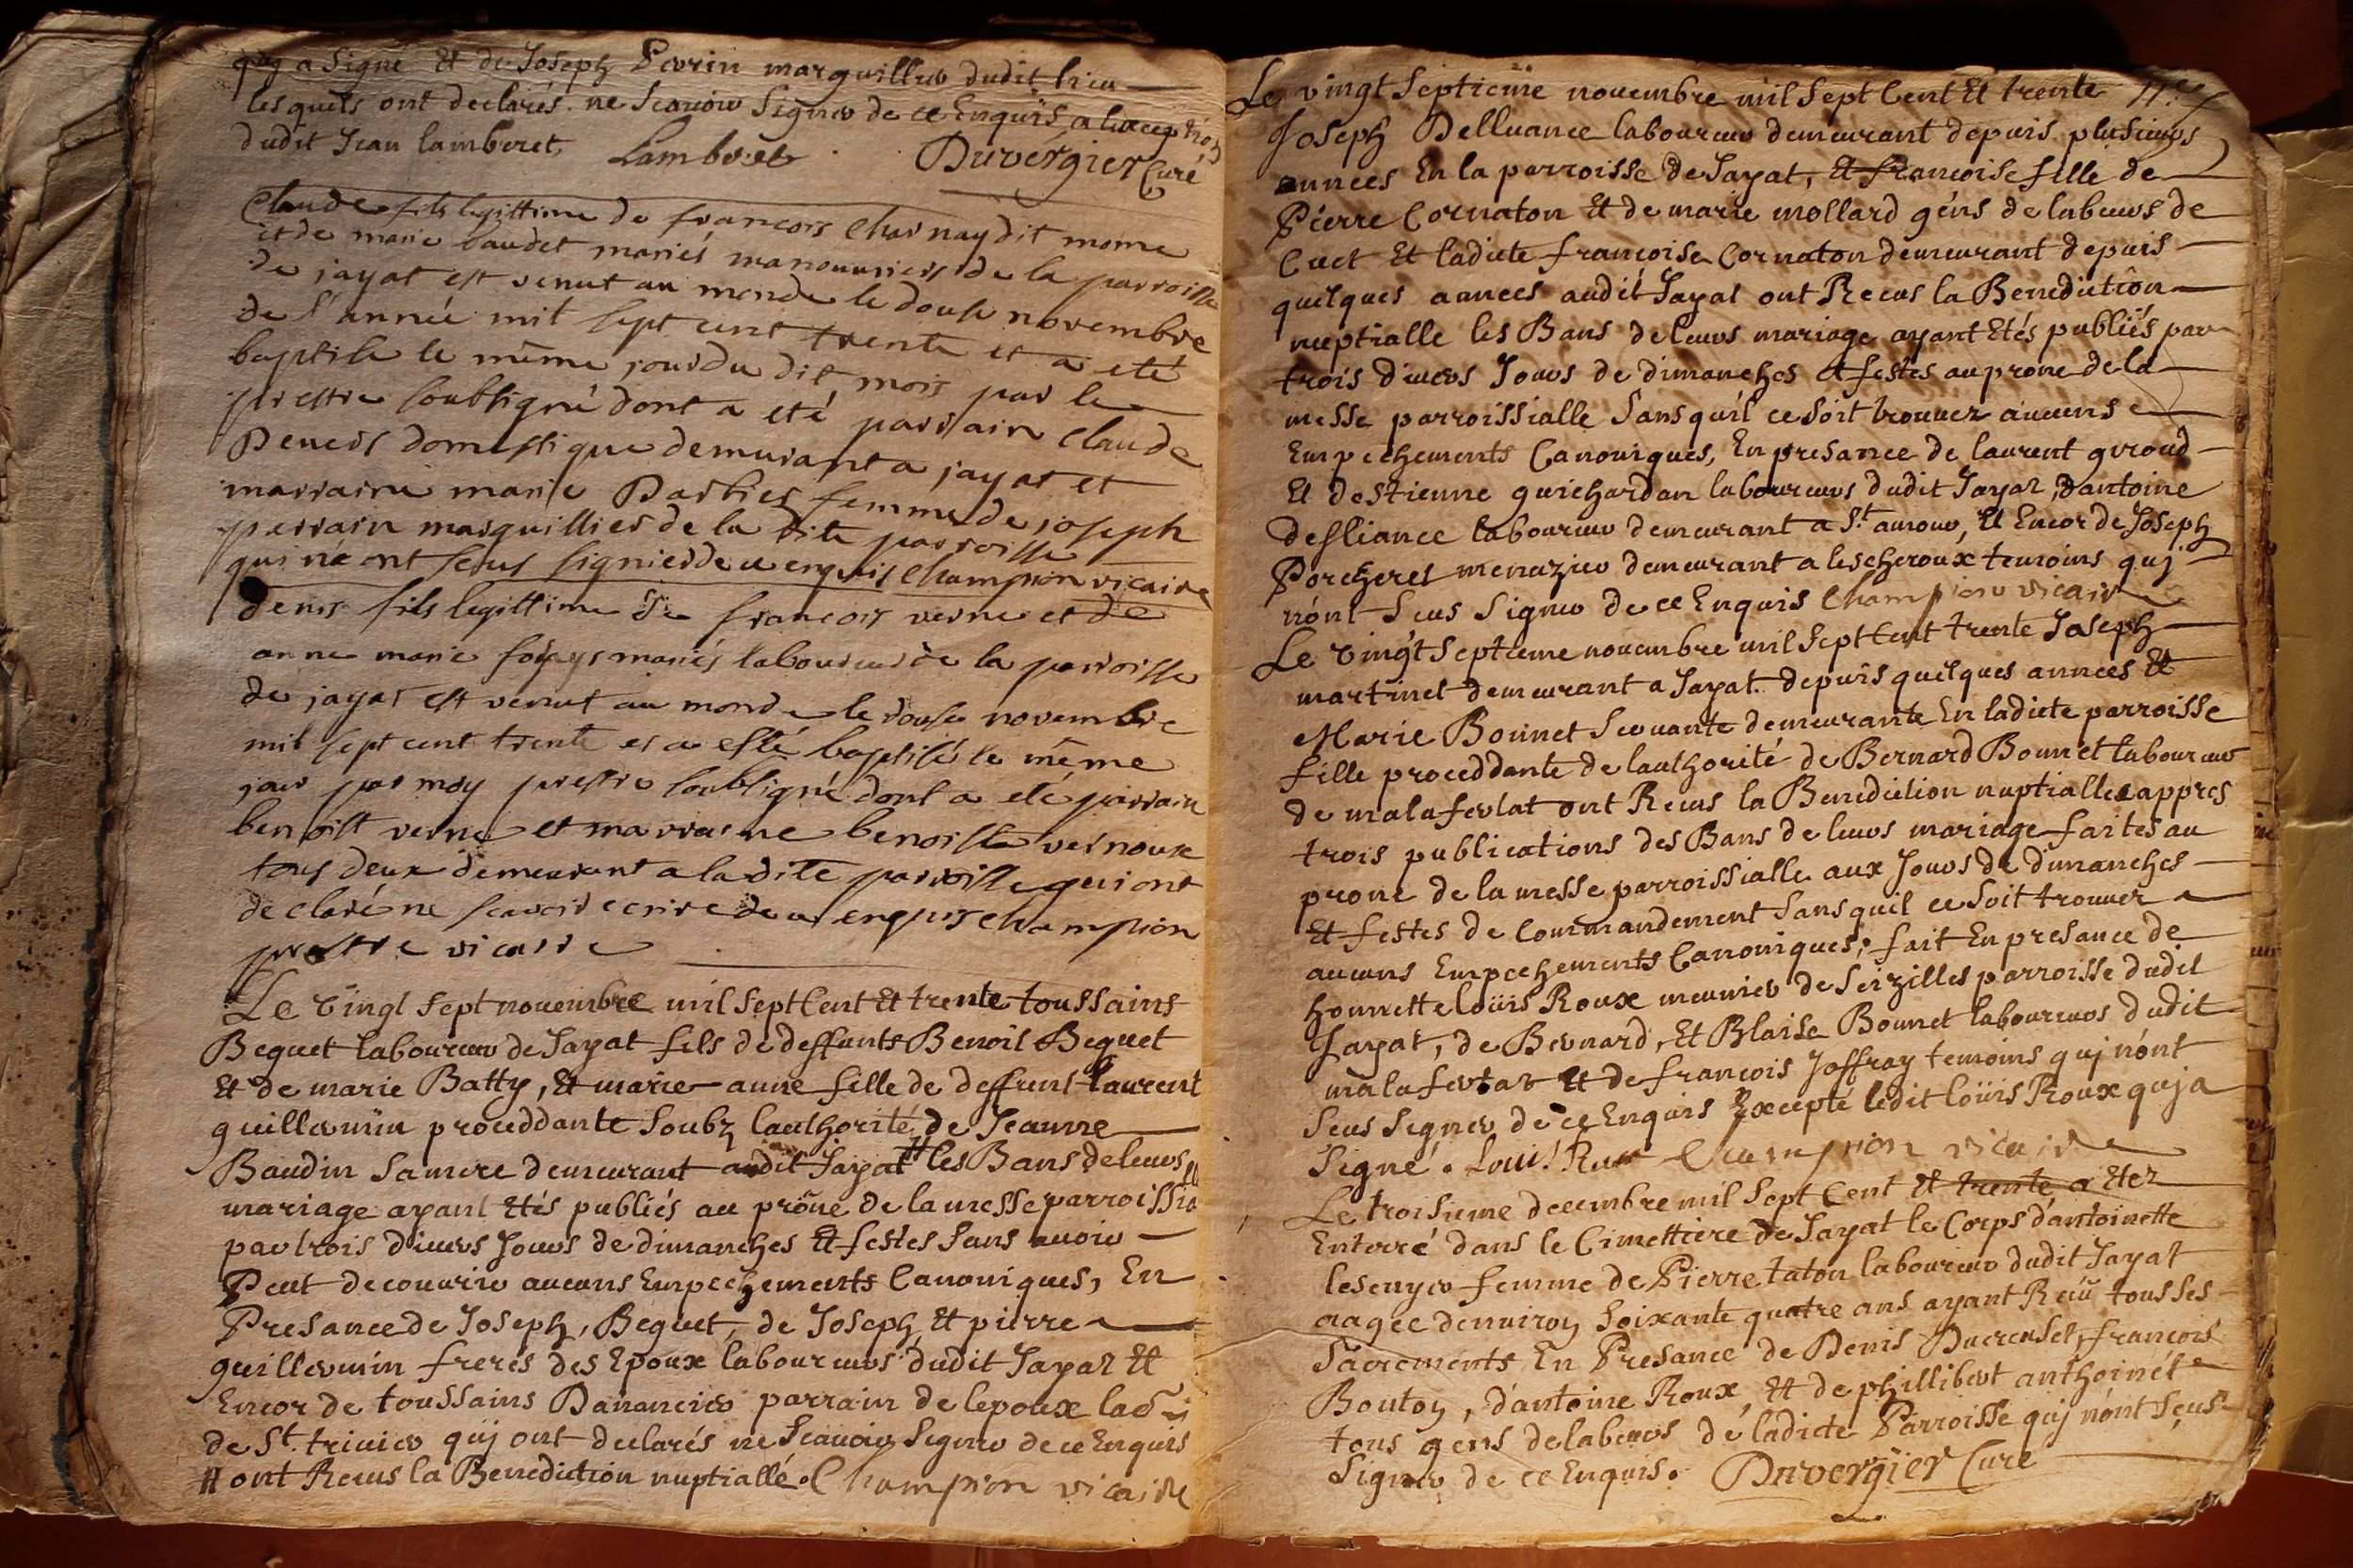 quj a Signé Et de Joseph Perrin marguillier dudit lieu
lesquels ont declarés ne Scavoir Signer de ce Enquis a lexception
dudit Jean lamberet, Lamberet Duvergier Curé
Claude fils legittime de françois Charnay dit mome
et de marie baudet mariés manouvriers de la parroisse
de jayat est venut au monde le douse novembre
de l'année mil sept cent trente et a eté
baptise le même jour du dit mois par le
prestre soubsigné dont a eté parrain Claude
domestique demurant a jayat et
marraine marie Barbier femme de joseph
perrain marguillier de la dite parroisse
qui ne ont seus signier de ce enquis Champion vicaire
denis fils legittime de françois verne et de
anne marie mariés laboureur de la parroisse
de jayat est venut au monde le douse novembre
mil sept cent trente et a esté baptisé le même
jour par moy prestre soubsigné dont a eté parrain
benoist verne et marraine benoiste vernoux
tous deux demeurant a la dite parroisse qui ont
declaré ne scavoir ecrire de ce enquis Champion
prestre vicaire
Le vingt sept novembre mil sept Cent Et trente toussains
Bequet laboureur de Jayat fils de deffunts Benoit Bequet
Et de marie Batty, Et marie anne fille de deffunt laurent
guillermin proceddante soubz lauthorité de Jeanne
Baudin sa mere demeurant audit Jayat # les Bans de leurs
mariage ayant Etés publiés au prône de la messe parroissialle
par trois divers Jours de dimanches Et festes sans avoir
Peut decouvrir aucuns Empechements Canoniques, En
Presance de Joseph, Bequet, de Joseph Et pierre
guillermin freres des Epoux laboureurs dudit Jayat Et
Encor de toussains Danancier parrain de lepoux
de St. trivier quj ont declarés ne Scavoir Signer de ce Enquis
# ont Recus la Benediction nuptiallé. Champion vicaire
Le vingt Septieme novembre mil Sept Cent Et trente
Joseph Delluance laboureur demeurant depuis plusieurs
années En la parroisse de Jayat, Et françoise fille de
Pierre Cornaton Et de marie mollard géns de labeurs de
Cuet Et ladicte françoise Cornaton demeurant depuis
quelques annees audit Jayat ont Recus la Benediction
nuptialle les Bans de leurs mariage ayant Etés publiés par
trois divers Jours de dimanches Et festes au prone de la
messe parroissialle Sans quil ce soit trouvez aucuns
Empechements Canoniques, En presance de laurent giroud
Et destienne guichardan laboureurs dudit Jayat, dantoine
desliance laboureur demeurant a St. amour, Et Encor de Joseph
Porcheret menuzier demeurant a lescheroux temoins quj
nónt Seus Signer de ce Enquis Champion vicaire
Le vingt Septieme novembre mil Sept Cent trente Joseph
martinet demeurant a Jayat depuis quelques annees Et
Marie Bonnet Servante demeurante En ladicte parroisse
fille proceddante de lauthorité de Bernard Bonnet laboureur
de malafertat ont Recus la Benediction nuptialle appres
trois publications des Bans de leurs mariage faites au
prone de la messe parroissialle aux Jours de dimanches
Et festes de Commandement Sans quil ce soit trouver
aucuns Empechements Canoniques; fait En presance de
honnette loüis Roux meunier de Seizilles parroisse dudit
Jayat, de Bernard, Et Blaise Bonnet laboureurs dudit
malafertat Et de françois Joffray temoins quj nónt
Seus Signer de ce Enquis Excepté ledit loüis Roux quj a
Signé. Loui! Rux Champion vicaire
Le troisieme decembre mil Sept Cent Et trente a Etez
Enterré dans le Cimettiere de Jayat le Corps dantoinette
lescuyer femme de Pierre taton laboureur dudit Jayat
aagée denviron Soixante quatre ans ayant Reçû tous ses
Sacrements En Presance de Denis Ducreuset, françois
Bouton, dántoine Roux, Et de phillibert anthoinét
tous gens de labeurs de ladicte Parroisse quj nónt Seus
Signer de ce Enquis. Duvergier Curé